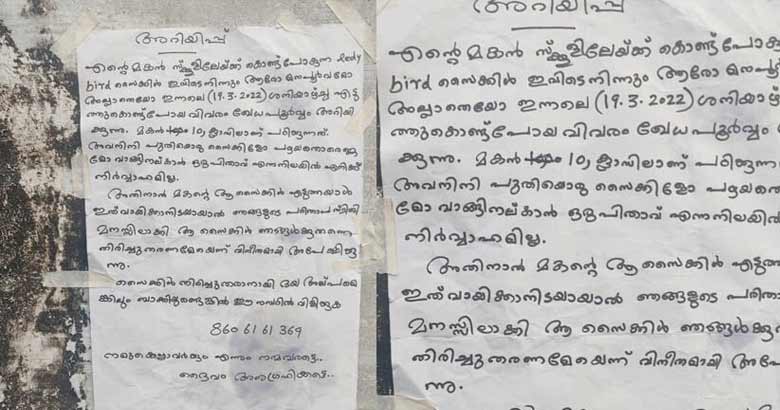 അറിയിപ്പ്
എന്റെ മകൻ സ്ക്കൂളിലേയ്ക്ക് കൊണ്ട് പോകുന്ന Lady
bird സൈക്കിൾ ഇവിടെനിന്നും ആരോ മനപൂർവമോ
അല്ലാതെയോ ഇന്നലെ (19.3.2022) ശനിയാഴ്ച്ച എടു
ത്തുകൊണ്ട്പോയ വിവരം ഖേധപൂർവ്വം അറിയി
ക്കുന്നു. മകൻ 10, ക്ലാസിലാണ് പഠിക്കുന്നത്.
അവനിനി പുതിയൊരു സൈക്കിളോ പഴയതൊരെണ്ണ
മോ വാങ്ങിനല്കാൻ ഒരുപിതാവ് എന്നനിലയിൽ എനിക്ക്
നിർവ്വാഹമില്ല.
അതിനാൻ മകന്റെ ആ സൈക്കിൾ എടുത്തയാൾ
ഇത് വായിക്കാനിടയായാൻ ഞങ്ങളുടെ പരിതാപസ്ഥിതി
മനസ്സിലാക്കി ആ സൈക്കിൾ ഞങ്ങൾക്കുതന്നെ
തിരിച്ചുതരണമേയെന്ന് വിനീതമായി അപേക്ഷിക്കു
ന്നു.
സൈക്കിൾ തിരിച്ചുതരാനായി ദയ അല്പമെ
ങ്കിലും ബാക്കിയുണ്ടെങ്കിൽ ഈ നമ്പറിൻ വിളിക്കുക
860 61 61 369
നമുക്കെല്ലാവർക്കും എന്നും നന്മവരട്ടെ..
ദൈവം അനുഗ്രഹിക്കട്ടെ..
അറിയിപ്പ്
എന്റെ മകൻ സ്ക്കൂളിലേയ്ക്ക് കൊണ്ട്പോകു
bird സൈക്കിൾ ഇവിടെനിന്നും ആരോ മനപൂർവ
അല്ലാതെയോ ഇന്നലെ (19.3.2022) ശനിയാഴ്
ത്തുകൊണ്ട്പോയ വിവരം ഖേധപൂർവ്വം
ക്കുന്നു. മകൻ 10, ക്ലാസിലാണ് പഠിക്കുന്ന
അവനിനി പുതിയൊരു സൈക്കിളോ പഴയത
മോ വാങ്ങിനല്കാൻ ഒരുപിതാവ് എന്നനിലയിൽ
നിർവ്വാഹമില്ല.
അതിനാൻ മകന്റെ ആ സൈക്കിൾ എടുത്ത
ഇത് വായിക്കാനിടയായാൻ ഞങ്ങളുടെ പരിതാ
മനസ്സിലാക്കി ആ സൈക്കിൾ ഞങ്ങൾക്കു
തിരിച്ചുതരണമേയെന്ന് വിനീതമായി അപേ
ന്നു.